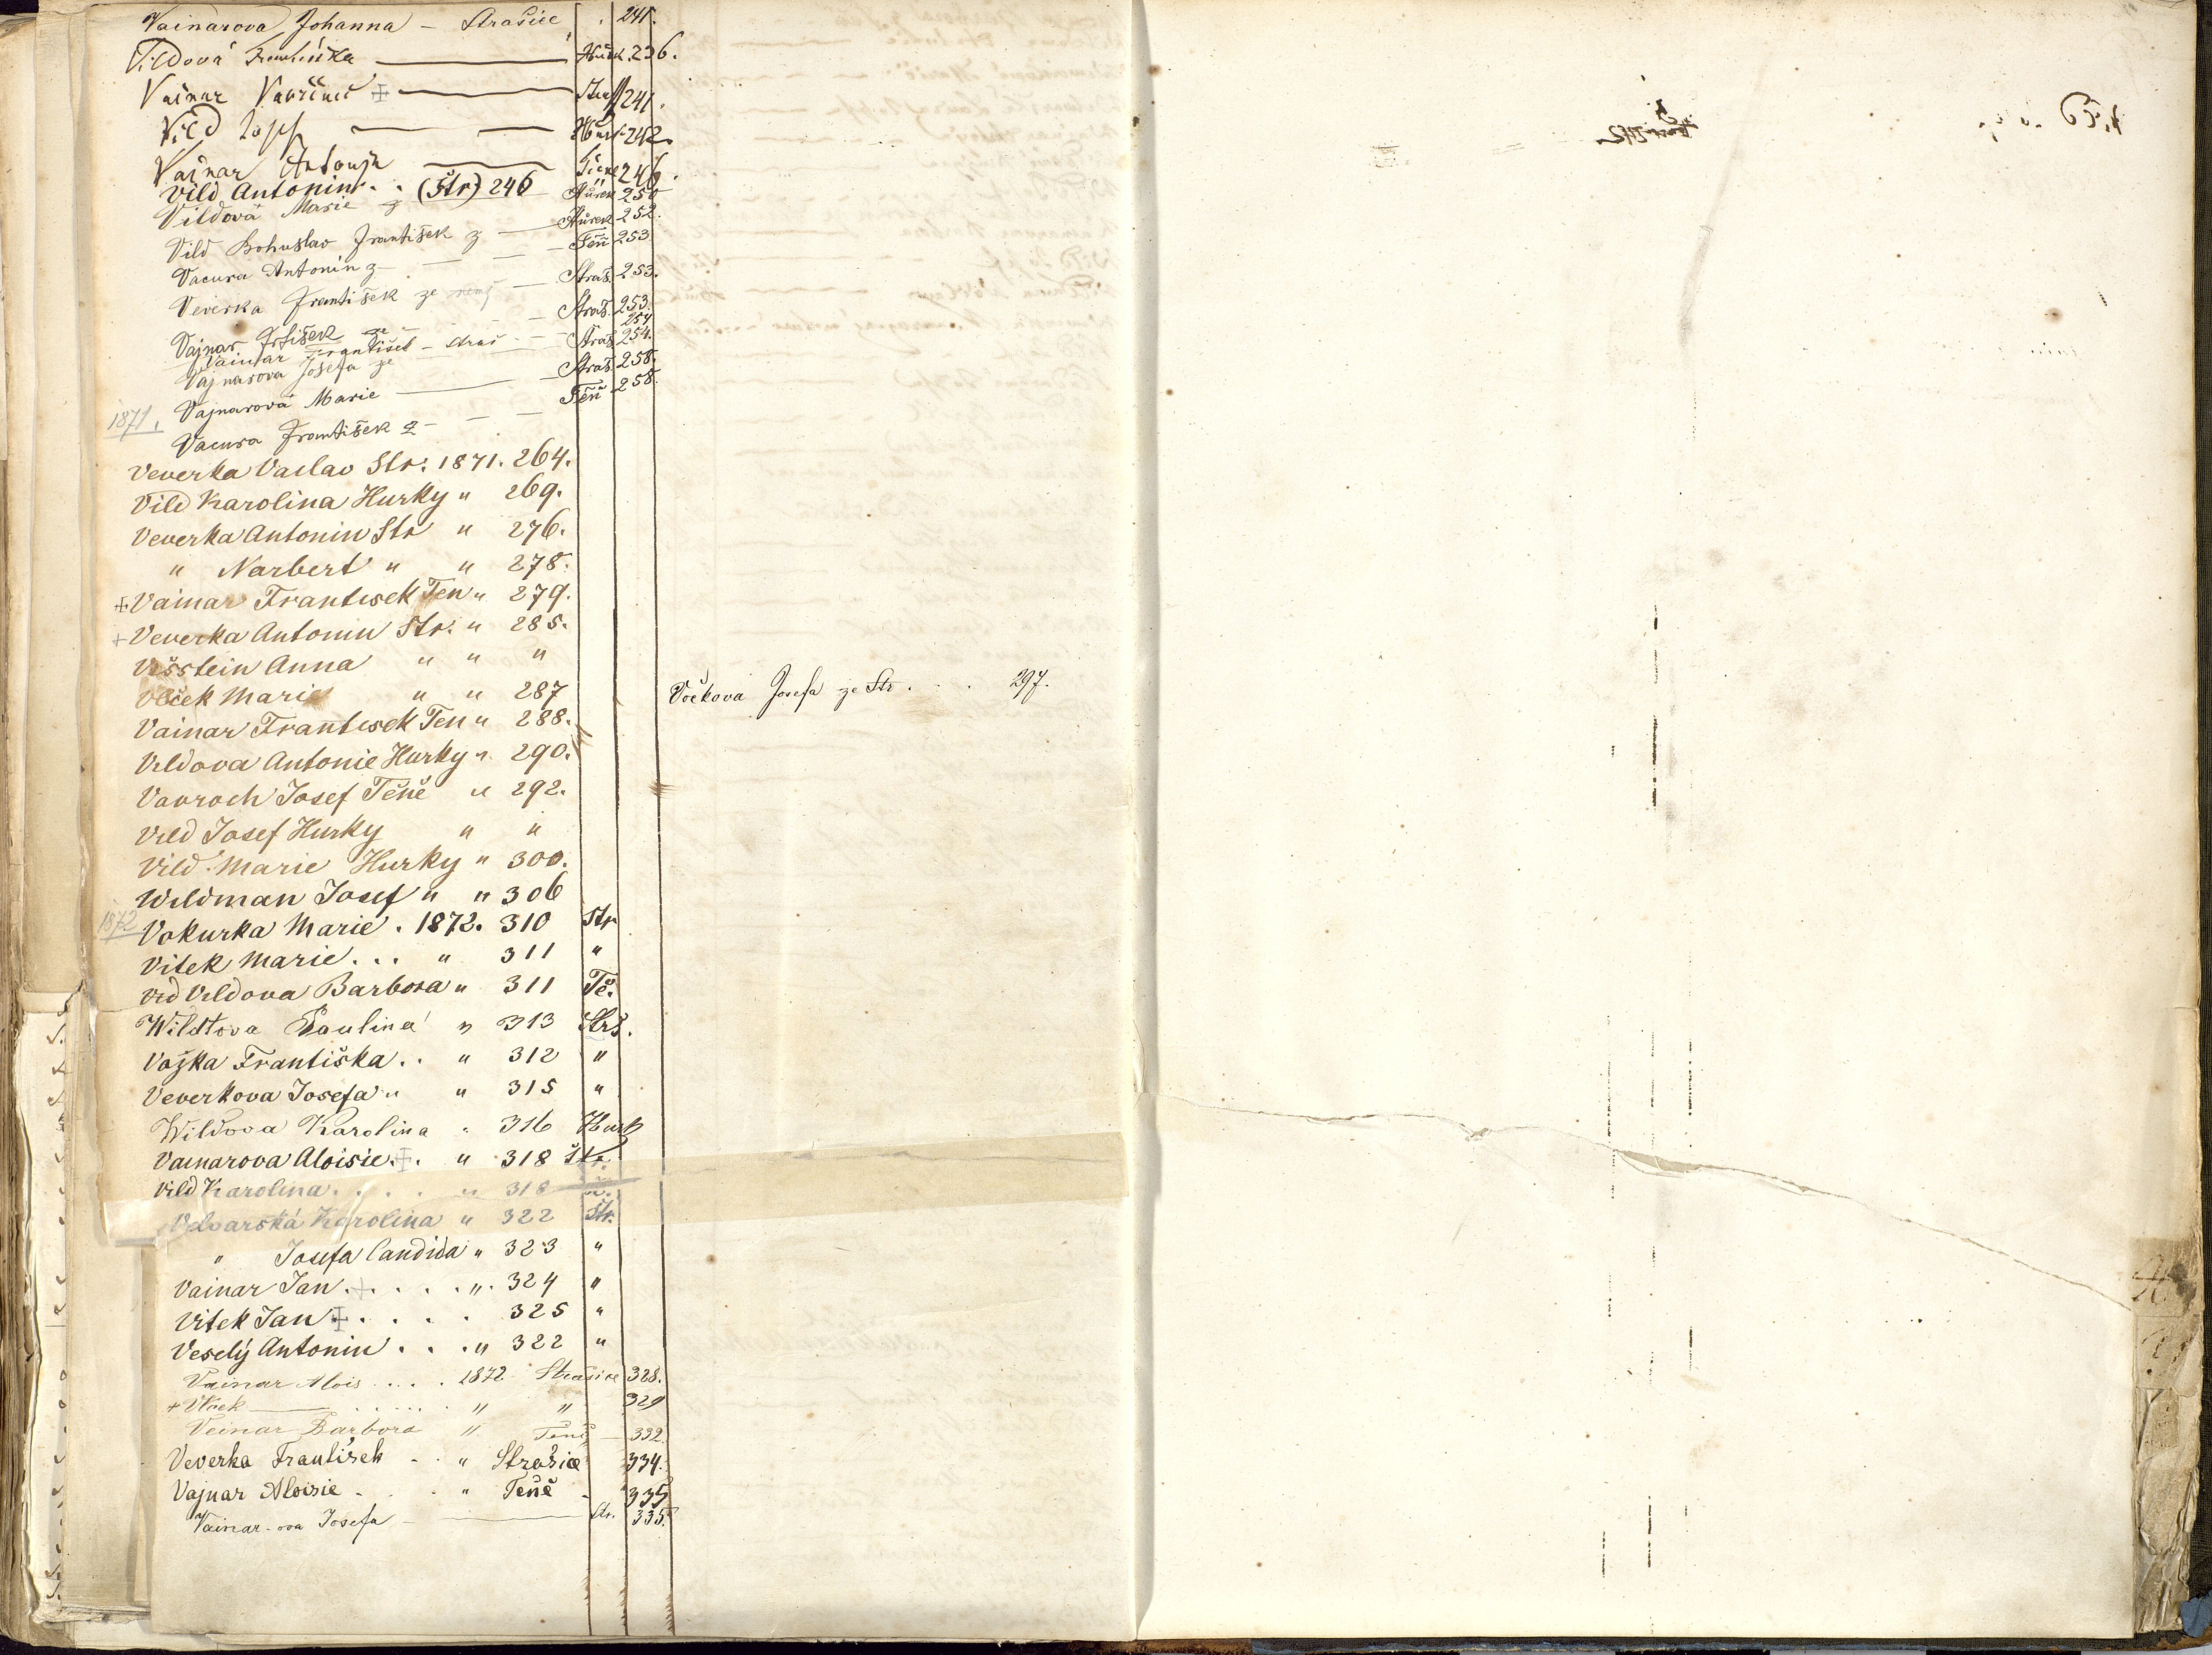 Vainarova Johanna – Strašice 241.
Vildová Františka — Hůrk. 236.
Vainar Vavřinec — Stra 241.
Vild Josef — — Hůrk 242.
Vajnar Antonín — Těně 246.
Vild Antonín . . (Str) 246
Vildová Marie z — Hůrek 250
Vild Bohuslav František z — Hůrek 252.
Vacura Antonín z — — — Těň 253.
Veverka František ze — Straš. 253.
Vajnar Frtišek ze — Straš. 253.
Vainar František – Straš — 254
Vajnarova Josefa ze — Straš 254.
Vajnarová Marie — Straš. 258.
1871. Vacura František z — — — Těň 258.
Veverka Vaclav Str. 1871. 264.
Vild Karolina Hurky " 269.
Veverka Antonin Str " 276.
" Narbert " " 278.
+ Vainar Frantisek Ten " 279.
+ Veverka Antonin Str. " 285.
Višstein Anna " " "
Vlček Marie " " 287
Vočkova Josefa ze Str. . . 297.
Vainar Frantisek Ten " 288.
Vildova Antonie Hurky " 290.
Vavroch Josef Těně " 292.
Vild Josef Hurky " "
Vild Marie Hurky " 300.
Wildman Josef " " 306
1872 Vokurka Marie . 1872. 310 Str
Vitek Marie . . . " 311 "
Vid Vildova Barbora " 311 Tě.
Wildtova Paulina " 313 Strš.
Vožka Františka . . " 312 "
Veverkova Josefa " " 315 "
Wildova Karolina " 316 Hurk
Vainarova Aloisie + . " 318 Str.
Vild Karolina . . . . " 318
Velvarská Karolina " 322 Str.
" Josefa Candida " 323 "
Vainar Jan . + . . . . " . 324 "
Vitek Jan + . . . . 325 "
Veselý Antonin . . . " 322 "
Vainar Alois . . . . 1872 Strašice 328.
+ Vlček — . . . . . . " " 329
Veinar Barbora " Těně — 332.
Veverka František - . " Strašice 334.
Vajnar Aloisie - . . " Těně - 335
Vainar-ova Josefa — Str. 335.